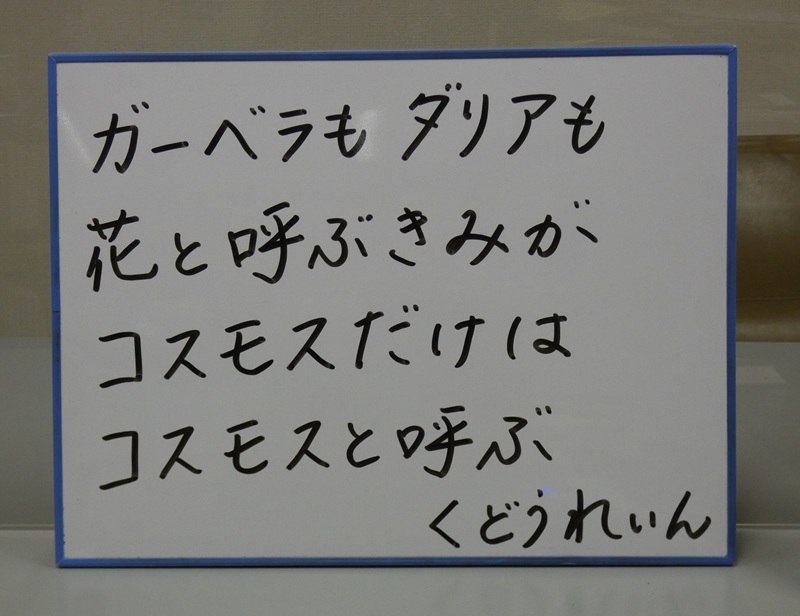 ガーベラも ダリアも
花と呼ぶきみが
コスモスだけは
コスモスと呼ぶ
くどうれいん